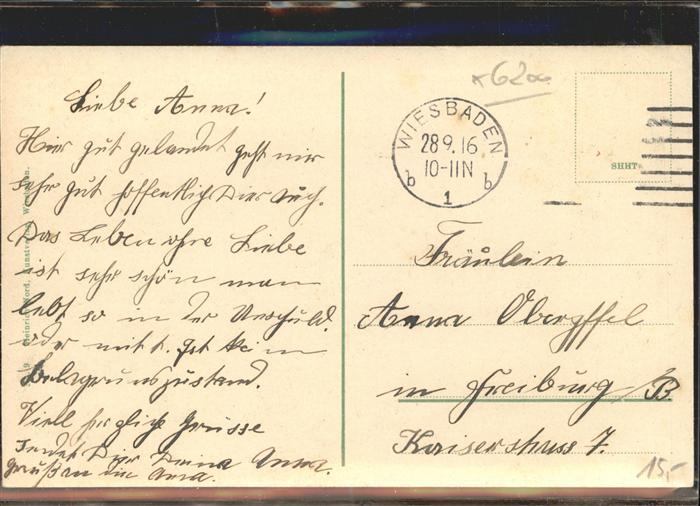 Liebe Anna!
Hier gut gelandet geht mir
sehr gut hoffentlich Dier auch.
Das Leben ohne Liebe
ist sehr schön man
lebt so in der Unschuld.
oder mit t. Ist kein
Belagrunszustand.
Viell herzliche Grüsse
sendet Dier Deine Anna.
die Anna.
*6200
WIESBADEN
28 9. 16
10-11 N
b b
1
SHHT
Fräulein
Anna Obergffel
in Freiburg /B
Kaiserstrass 7.
15,-